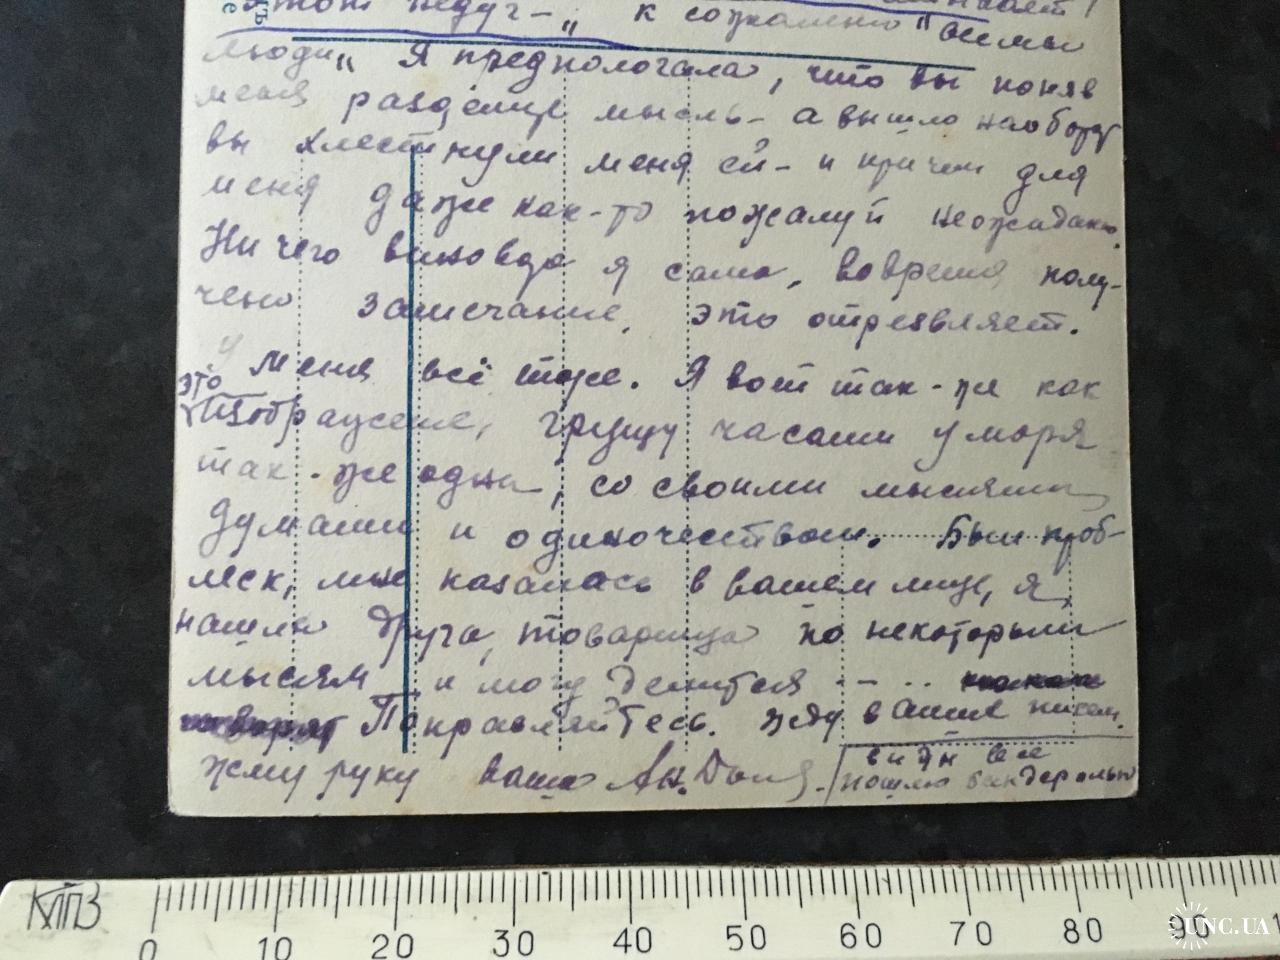 этот недуг — „ к сожалению "весьма
люди„ Я предпологала, что вы поняв
меня разделите мысль — а вышло наоборот
вы хлестнули меня ей — и причем для
меня даже как-то пожалуй неожиданно.
Ничего виновата я сама, вовремя полу-
чено замечание, это отрезвляет.
У меня всё тоже. Я вот так-же как
это
изображение, грущу часами у моря
так-же одна, со своими мыслями
думами и одиночеством. Был проб-
леск, мне казалась в вашем лице, я
нашла друга, товарища по некоторым
мыслям и могу делится — - . .
Поправляйтесь. жду ваших писем.
жму руку ваша Ан.
виды все
пошлю бандеролью
КПВЗ
0 10 20 30 40 50 60 70 80 90
UNC.UA